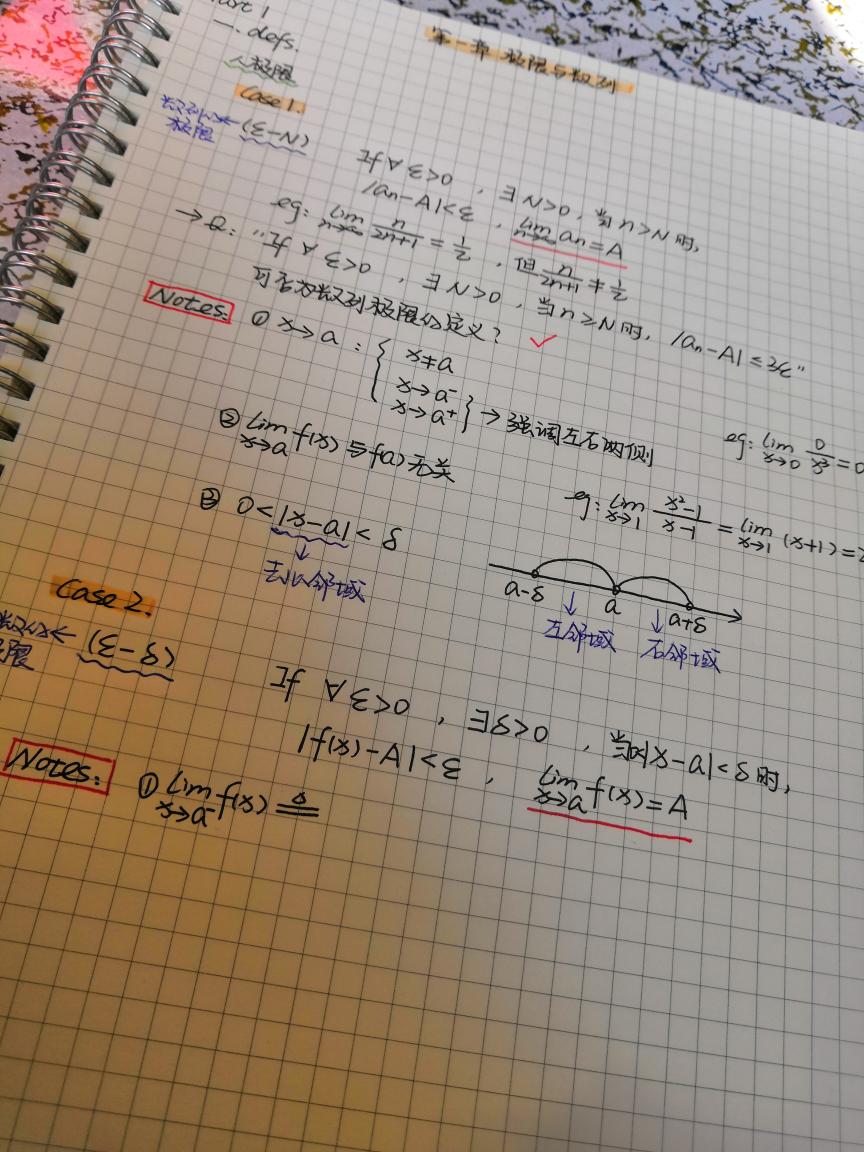 第一章 极限与数列
Part 1
一. defs.
1.极限
Case 1.
数列的← (ε-N)
极限
If ∀ ε>0 , ∃ N>0, 当 n>N 时,
|an-A|<ε , lim n→∞ an=A
eg: lim n→∞ n/(2n+1) = 1/2 , 但 n/(2n+1) ≠ 1/2
→Q: "If ∀ ε>0 , ∃ N>0 , 当 n≥N 时, |an-A|≤3ε"
可否为数列极限的定义? ✓
Notes:
① x→a : { x≠a
x→a⁻
x→a⁺ } →强调左右两侧
eg: lim x→0 0/x³ = 0
② lim x→a f(x) 与f(a)无关
eg: lim x→1 (x²-1)/(x-1) = lim x→1 (x+1)=2
③ 0<|x-a|<δ
↓
去心邻域
a-δ a a+δ
↓ ↓
左邻域 右邻域
Case 2.
← (ε-δ)
极限
If ∀ ε>0 , ∃δ>0 , 当0<|x-a|<δ 时,
|f(x)-A|<ε , lim x→a f(x)=A
Notes:
① lim x→a⁻ f(x) ≜